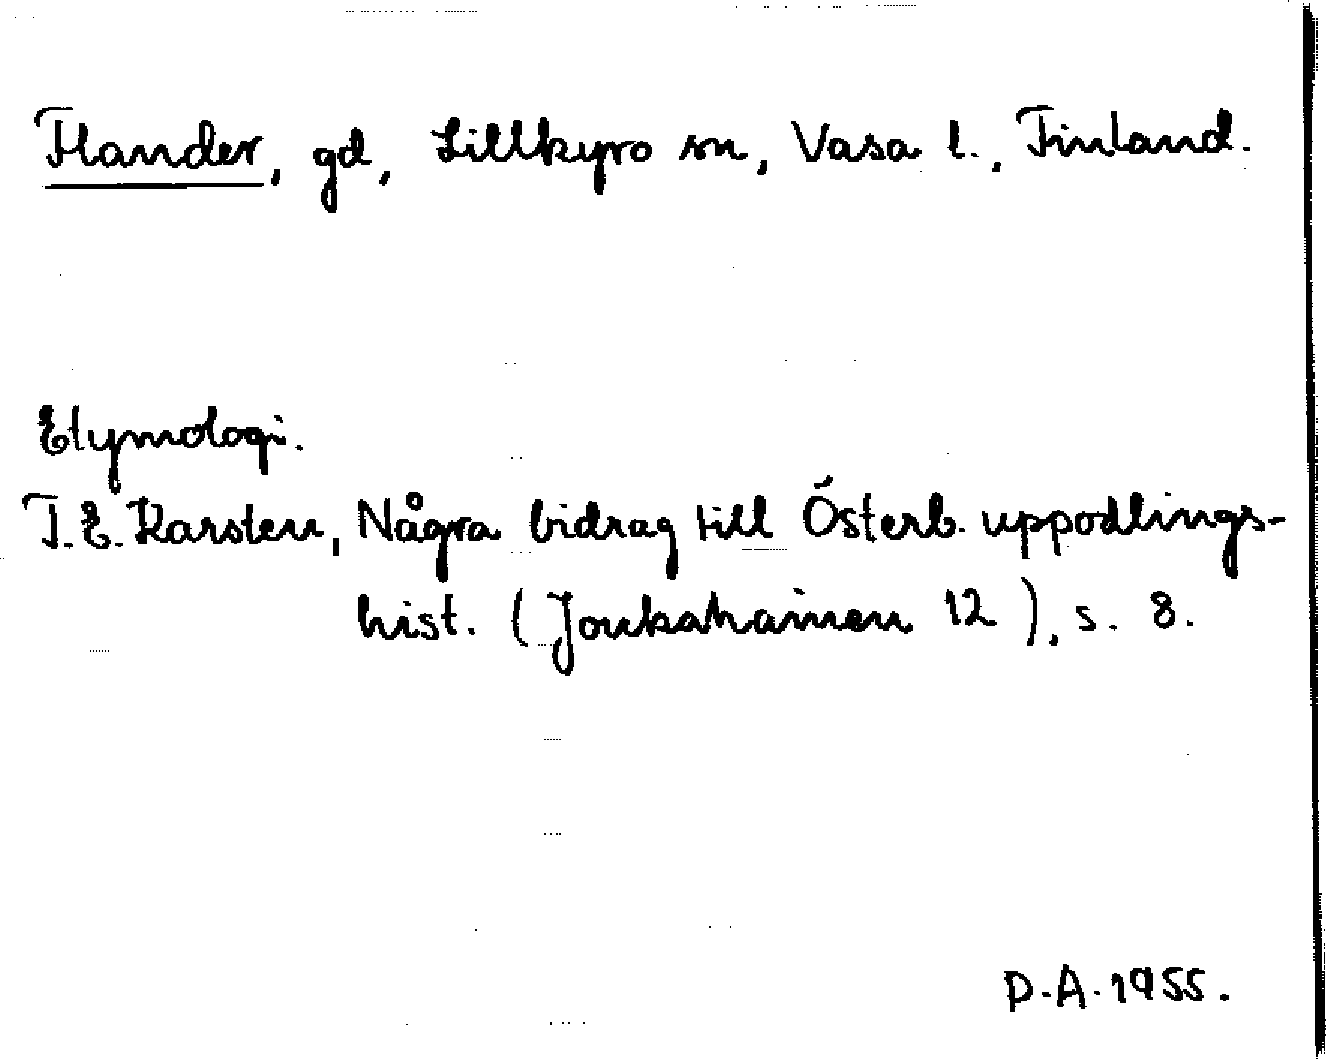 Flander, gd, Lillkyro sn, Vasa l., Finland.
Etymologi.
T.E. Karsten, Några bidrag till Österb. uppodlings-
hist. (Joukahainen 12), s. 8.
P.A. 1955.